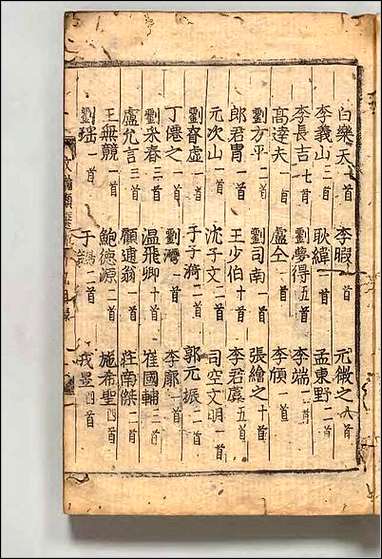 白樂天 首 李賀 一首 元微之 八首
李義山 三首 耿緯 一首 孟東野 二首
李長吉 七首 劉夢得 五首 李端 一首
高達夫 一首 盧仝 一首 李頎 一首
劉方平 二首 劉司南 一首 張繪之 十首
郎君胄 一首 王少伯 十首 李君虞 五首
元次山 一首 沈子文 二首 司空文明 一首
劉眘虛 一首 于子漪 二首 郭元振 二首
丁僊之 一首 劉灣 一首 李廓 一首
劉采春 三首 温飛卿 十首 崔國輔 三首
盧允言 三首 顧逋翁 一首 莊南傑 二首
王無競 一首 鮑德源 二首 施希聖 四首
劉瑶 一首 于鵠 二首 戎昱 四首